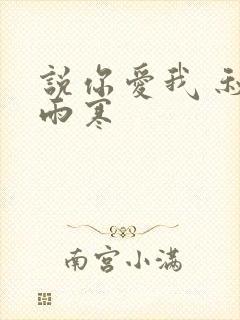 說你愛我
雨寒
南宫小满